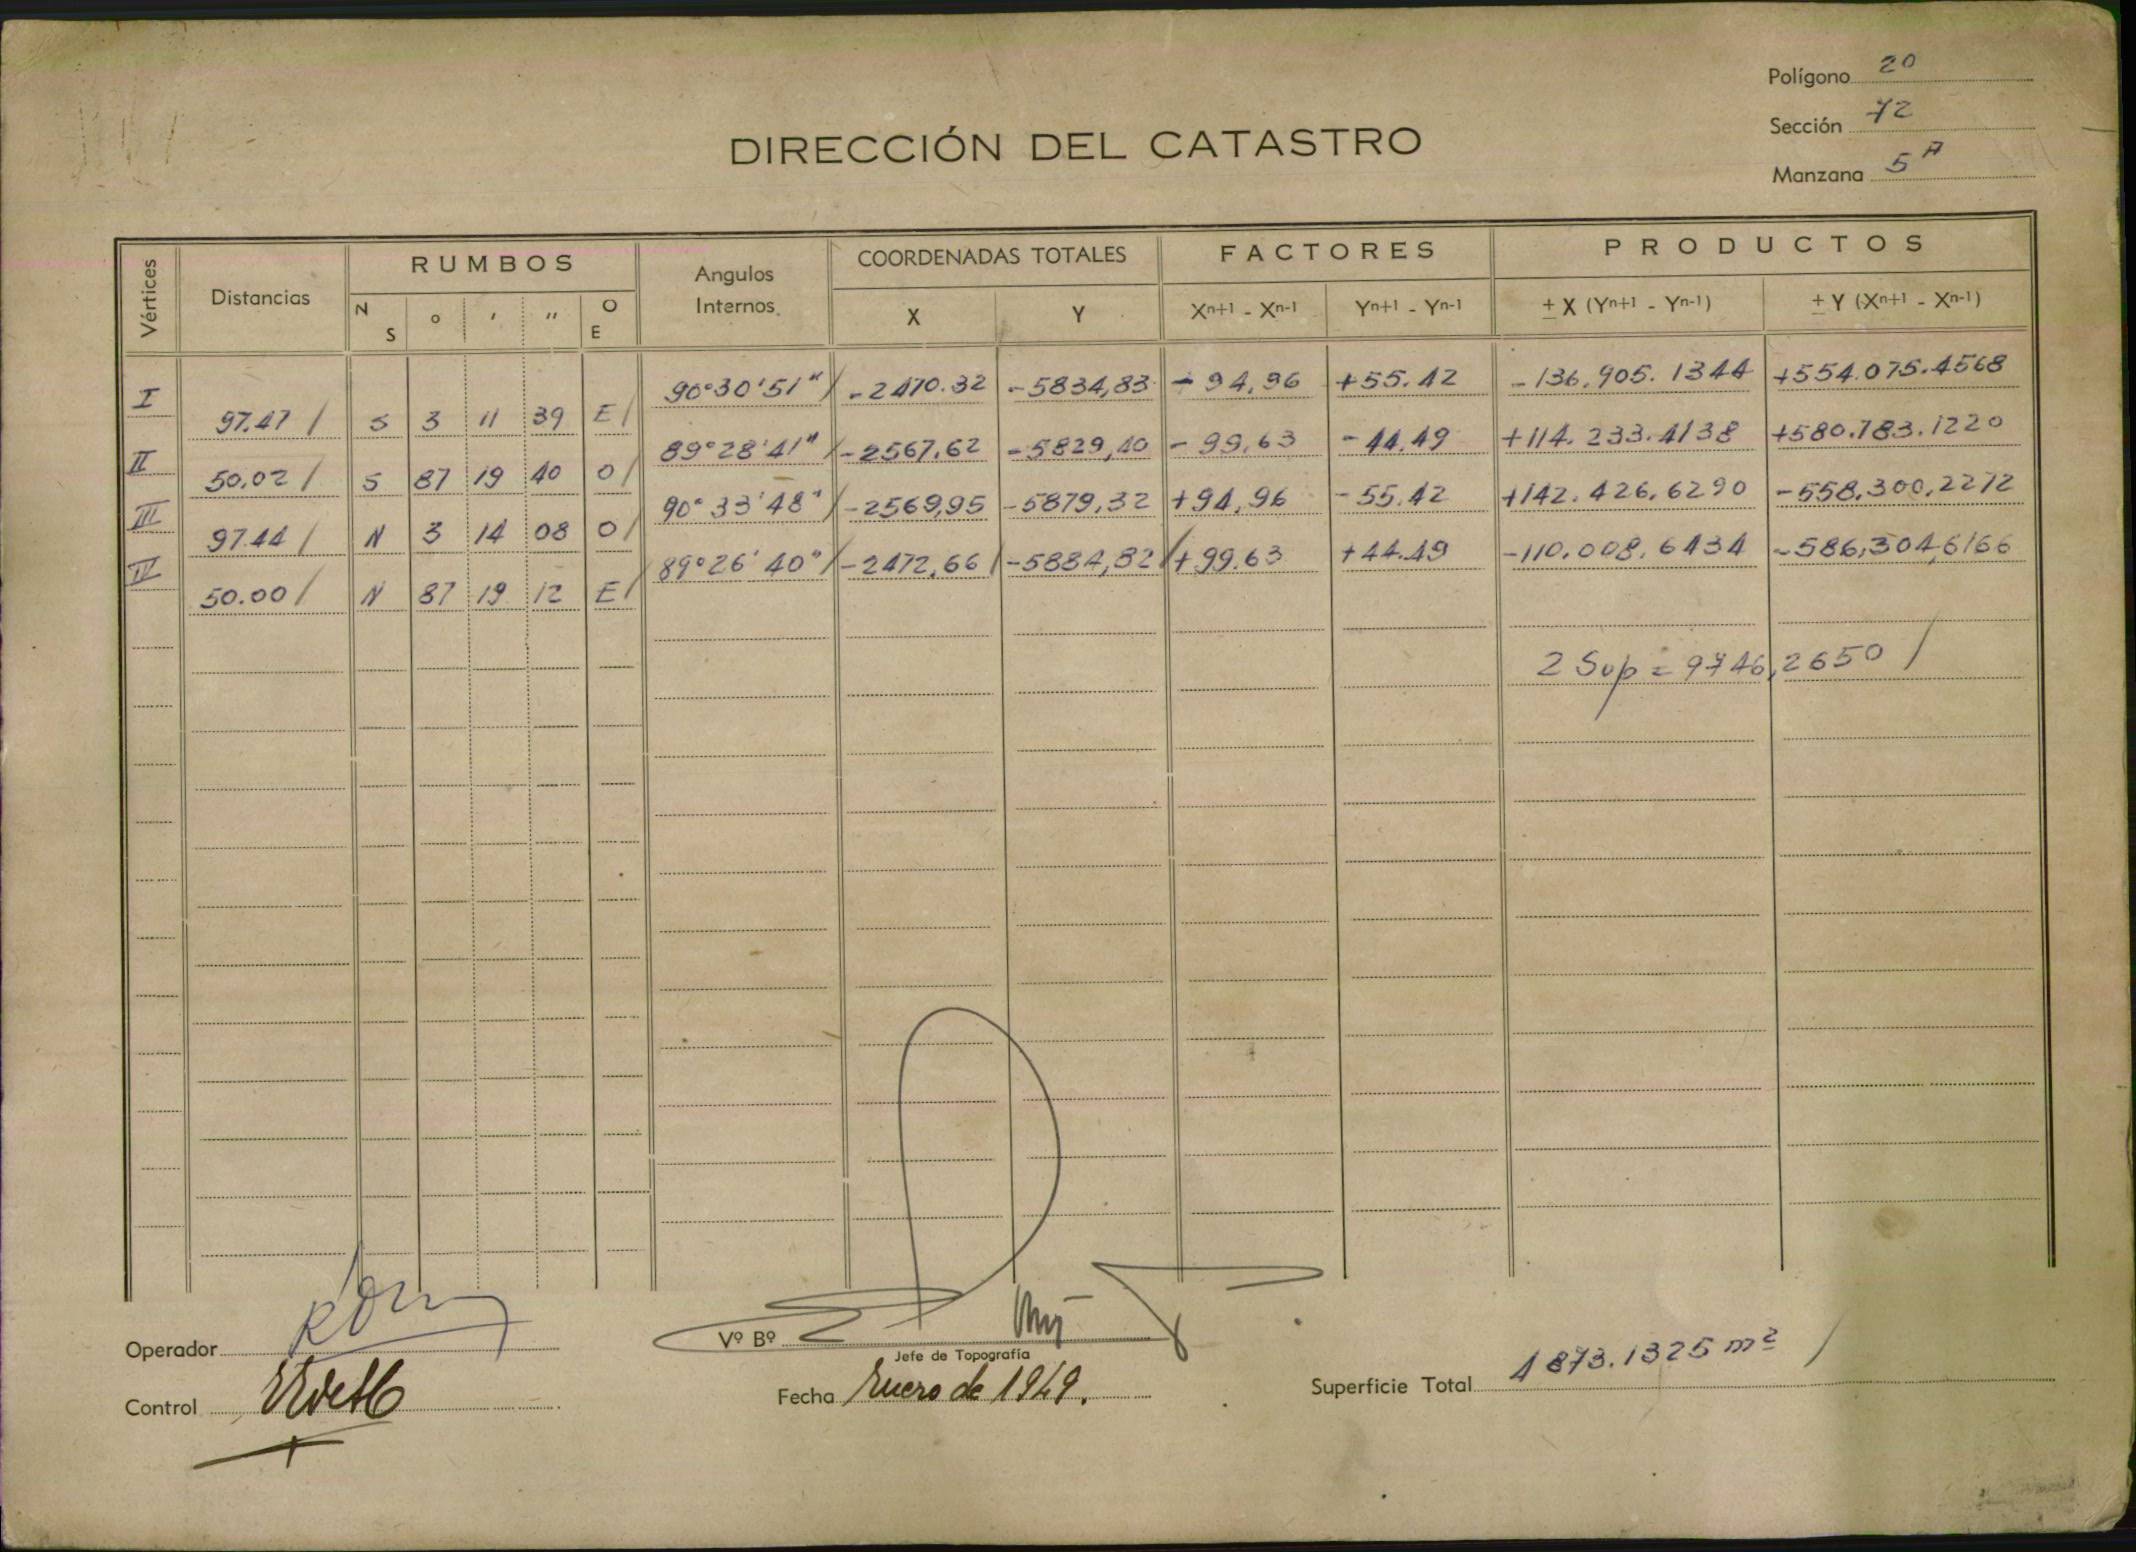 Polígono 20
Sección 72
Manzana 5A
DIRECCIÓN DEL CATASTRO
Vértices Distancias RUMBOS Angulos Internos COORDENADAS TOTALES FACTORES PRODUCTOS
N S ° ' " O E X Y Xn+1 - Xn-1 Yn+1 - Yn-1 ± X (Yn+1 - Yn-1) ± Y (Xn+1 - Xn-1)
I 90°30'51" -2470.32 -5834,83 -94,96 +55.42 -136.905.1344 +554.075.4568
97.47 S 3 11 39 E
II 89°28'41" -2567,62 -5829,40 -99,63 -44.49 +114.233.4138 +580.783.1220
50.02 S 87 19 40 O
III 90°33'48" -2569,95 -5879,32 +94,96 -55.42 +142.426,6290 -558,300,2272
97.44 N 3 14 08 O
IV 89°26'40" -2472,66 -5884,82 +99.63 +44.49 -110.008.6434 -586,304,6166
50.00 N 87 19 12 E
2 Sup = 9746,2650
Operador
Vº Bº
Jefe de Topografía
Control
Fecha Enero de 1949.
Superficie Total 4873.1325 m²